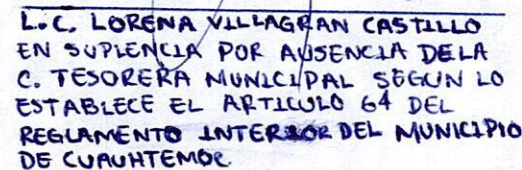 L.C. LORENA VILLAGRAN CASTILLO
EN SUPLENCIA POR AUSENCIA DE LA
C. TESORERA MUNICIPAL SEGUN LO
ESTABLECE EL ARTICULO 64 DEL
REGLAMENTO INTERIOR DEL MUNICIPIO
DE CUAUHTEMOC